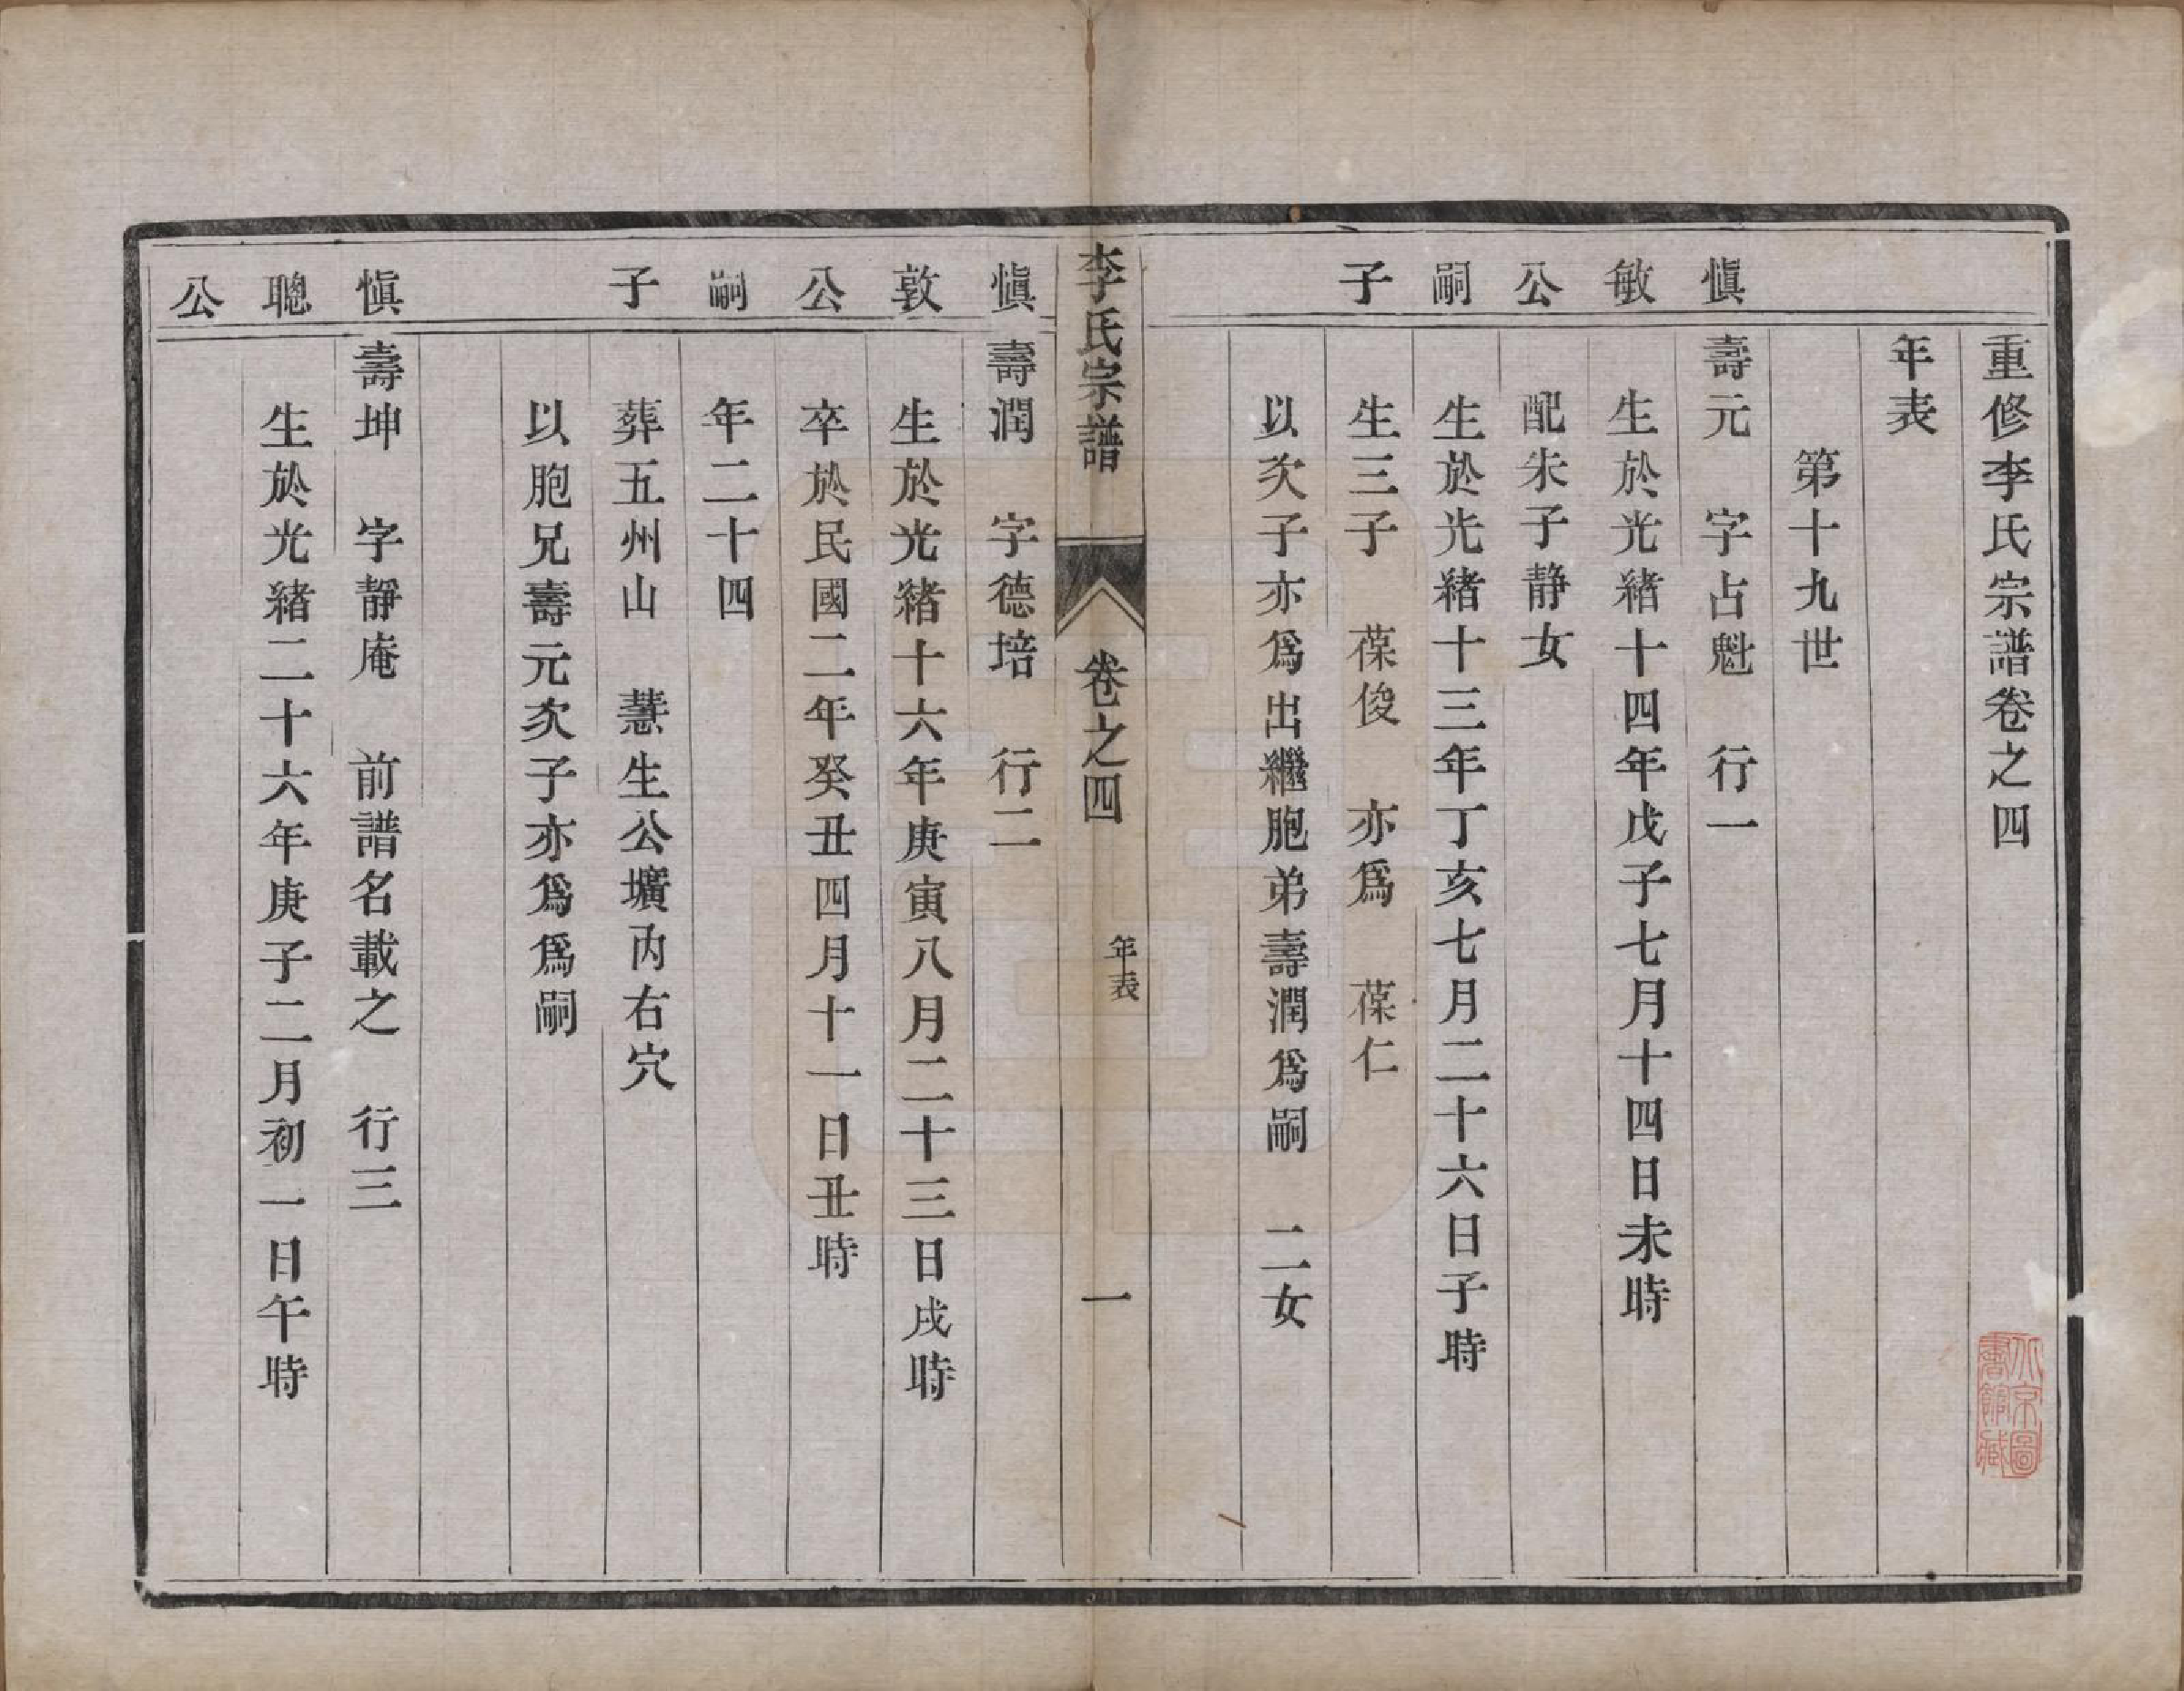 重修李氏宗譜卷之四
年表
第十九世
愼敏公嗣子
壽元 字占魁 行一
生於光緒十四年戊子七月十四日未時
配朱子静女
生於光緒十三年丁亥七月二十六日子時
生三子 葆俊 亦爲 葆仁
以次子亦爲出繼胞弟壽潤爲嗣 二女
李氏宗譜 卷之四 年表 一
愼敦公嗣子
壽潤 字德培 行二
生於光緒十六年庚寅八月二十三日戌時
卒於民國二年癸丑四月十一日丑時
年二十四
葬五州山 慧生公壙內右穴
以胞兄壽元次子亦爲爲嗣
愼聰公
壽坤 字靜庵 前譜名載之 行三
生於光緒二十六年庚子二月初一日午時
北京圖書館藏